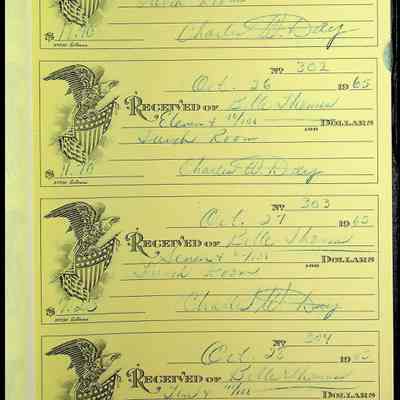 Lunch Room
$ 11.70 Charles W. Day
No 302
Oct. 26 1965
RECEIVED OF Belle Thomas
Eleven & 70/100 AND DOLLARS
Lunch Room
$ 11.70 Charles W. Day
No 303
Oct. 27 1965
RECEIVED OF Belle Thomas
Seven & /100 AND DOLLARS
Lunch Room
$ Charles W. Day
No 304
Oct. 28 1965
RECEIVED OF Belle Thomas
Ten & /100 DOLLARS